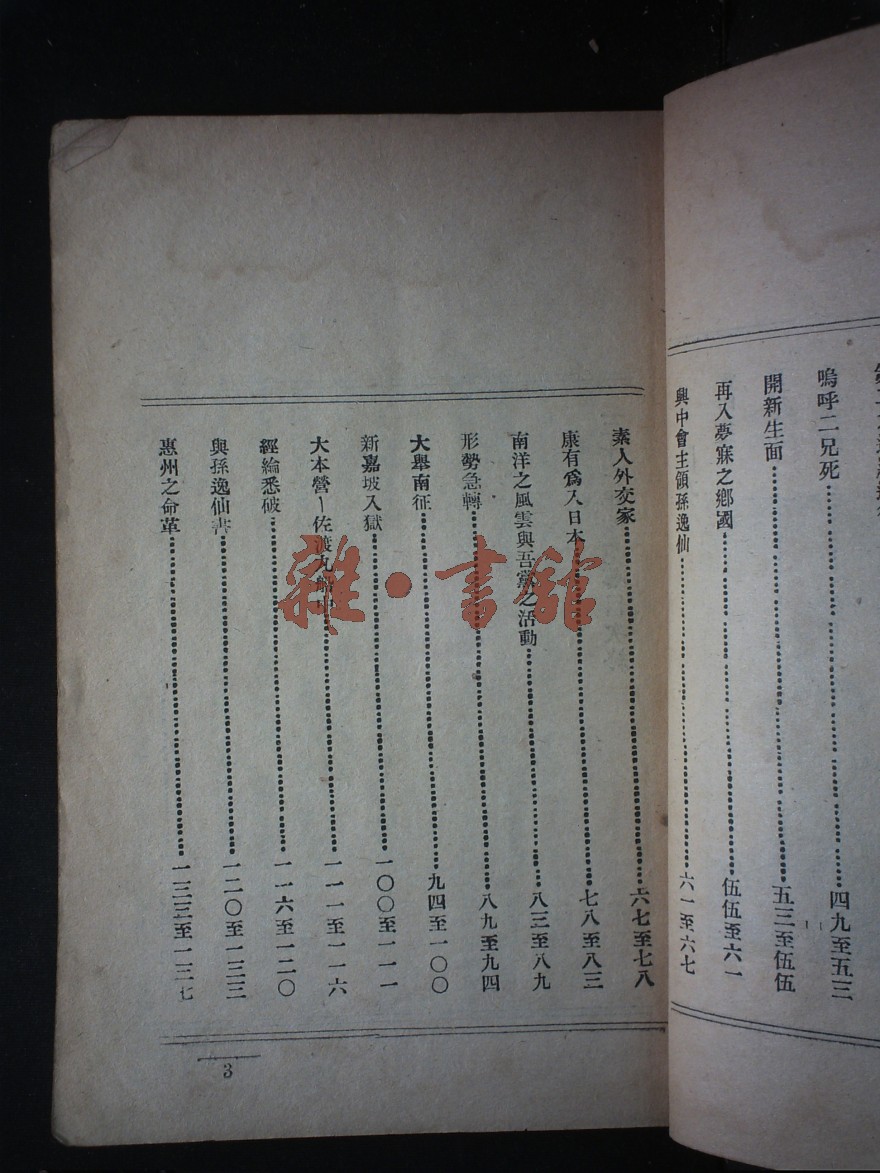 嗚呼二兄死……四九至五三
開新生面……五三至伍伍
再入夢寐之鄉國……伍伍至六一
興中會主領孫逸仙……六一至六七
素人外交家……六七至七八
康有爲入日本……七八至八三
南洋之風雲與吾黨之活動……八三至八九
形勢急轉……八九至九四
大舉南征……九四至一〇〇
新嘉坡入獄……一〇〇至一一一
大本營－佐渡丸船中……一一一至一一六
經綸悉破……一一六至一二〇
與孫逸仙書……一二〇至一三三
惠州之命革……一三三至一三七
3
雜·書館